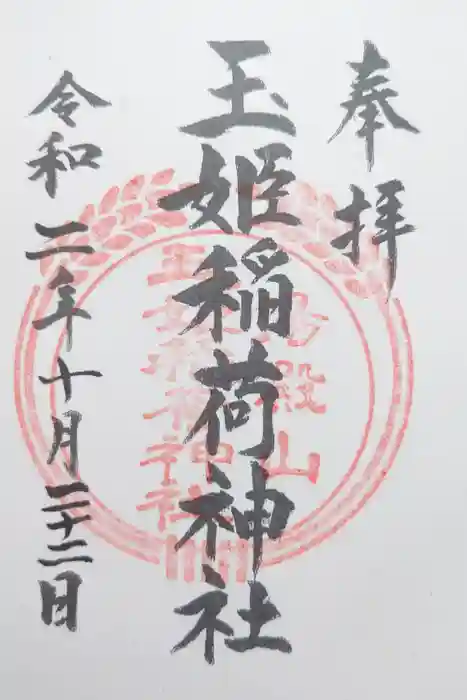 奉拝
玉姫稲荷神社
令和二年十月二十二日
御殿山
玉姫稲荷神社